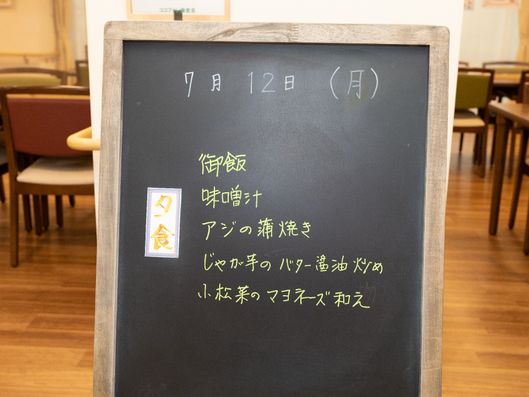 7月 12日 (月)
夕食
御飯
味噌汁
アジの蒲焼き
じゃが芋のバター醤油炒め
小松菜のマヨネーズ和え